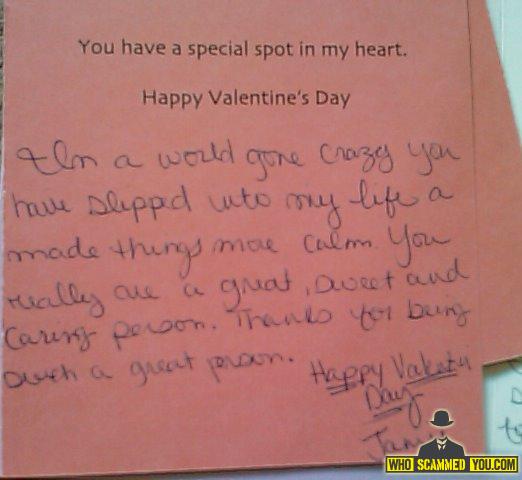 You have a special spot in my heart.
Happy Valentine's Day
In a world gone crazy you
have slipped into my life a
made things more calm. You
really are a great, sweet and
caring person. Thanks for being
such a great person.
Happy
Day
WHO SCAMMED YOU.COM